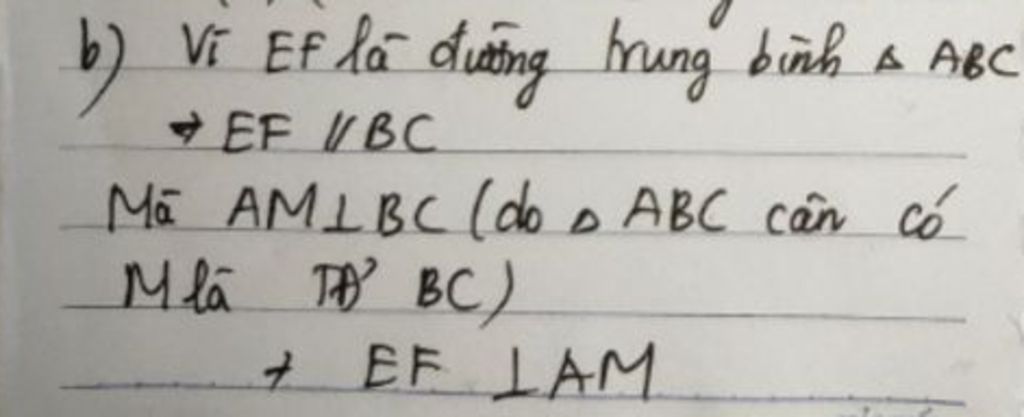 b) Vì EF là đường trung bình △ ABC
→ EF // BC
Mà AM ⊥ BC (do △ ABC cân có
M là TĐ BC)
→ EF ⊥ AM